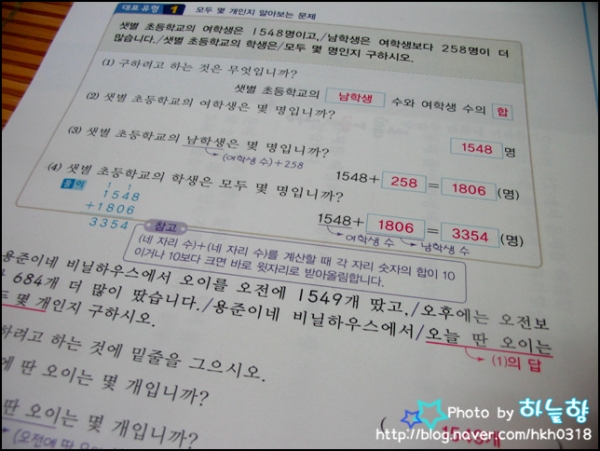 대표 유형 1 모두 몇 개인지 알아보는 문제
샛별 초등학교의 여학생은 1548명이고,/남학생은 여학생보다 258명이 더
많습니다./샛별 초등학교의 학생은/모두 몇 명인지 구하시오.
(1) 구하려고 하는 것은 무엇입니까?
샛별 초등학교의 남학생 수와 여학생 수의 합
(2) 샛별 초등학교의 여학생은 몇 명입니까?
1548 명
(3) 샛별 초등학교의 남학생은 몇 명입니까?
(여학생 수)+258
1548+ 258 = 1806 (명)
(4) 샛별 초등학교의 학생은 모두 몇 명입니까?
1548+ 1806 = 3354 (명)
여학생 수 남학생 수
풀이
1 1
1548
+1806
3354
참고
(네 자리 수)+(네 자리 수)를 계산할 때 각 자리 숫자의 합이 10
이거나 10보다 크면 바로 윗자리로 받아올림합니다.
용준이네 비닐하우스에서 오이를 오전에 1549개 땄고,/오후에는 오전보
684개 더 많이 땄습니다./용준이네 비닐하우스에서/오늘 딴 오이는
몇 개인지 구하시오.
(1)의 답
하려고 하는 것에 밑줄을 그으시오.
에 딴 오이는 몇 개입니까?
딴 오이는 몇 개입니까?
(오전에 딴
Photo by 하늘향
http://blog.naver.com/hkh0318